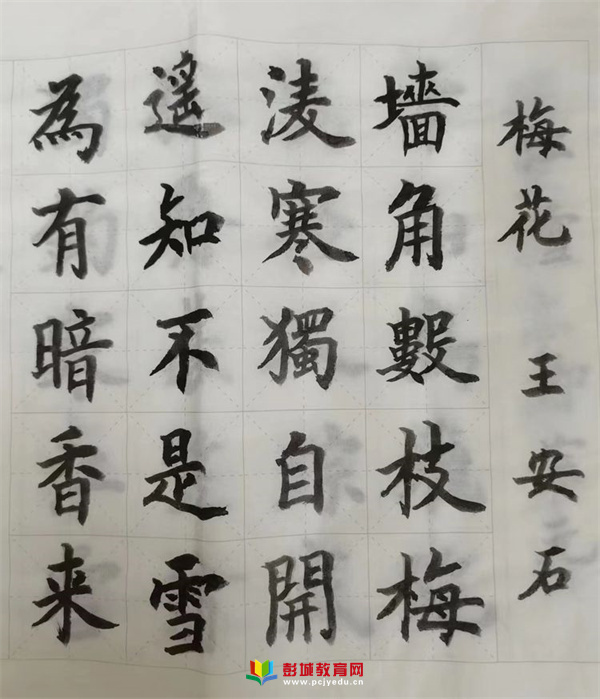 梅花 王安石
墻角數枝梅
淩寒獨自開
遙知不是雪
為有暗香来
彭城教育网
www.pcjyedu.cn